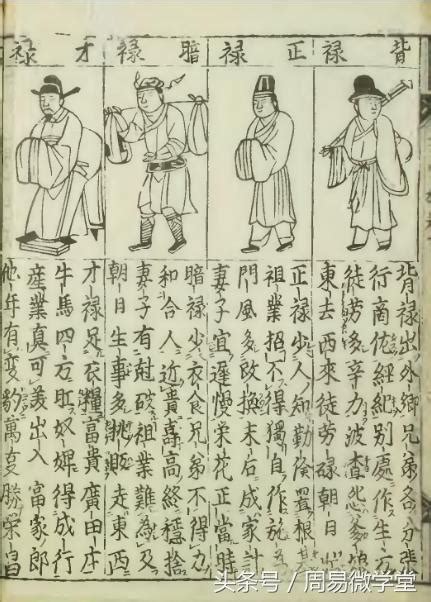 背禄
正禄
暗禄
才禄
背禄出外鄉兄弟各分張
行商作經紀别處作生方
徒劳多辛力波查悲爹娘
東去西來徒劳碌朝日
正禄少人知勤儉置根基
祖業招不得獨自作施為
門風多改換末后成家計
妻子宜遲慢荣花正當時
暗禄少衣食兄弟不得力
和合人近貴壽高終穩捨
妻子有尅破祖業難為及
朝日生事多挑販走東西
才禄足衣糧富貴廣田庄
牛馬四方旺奴婢得成行
産業真可羨出入富家郎
他年有变豹萬变勝荣昌
头条号 / 周易微学堂